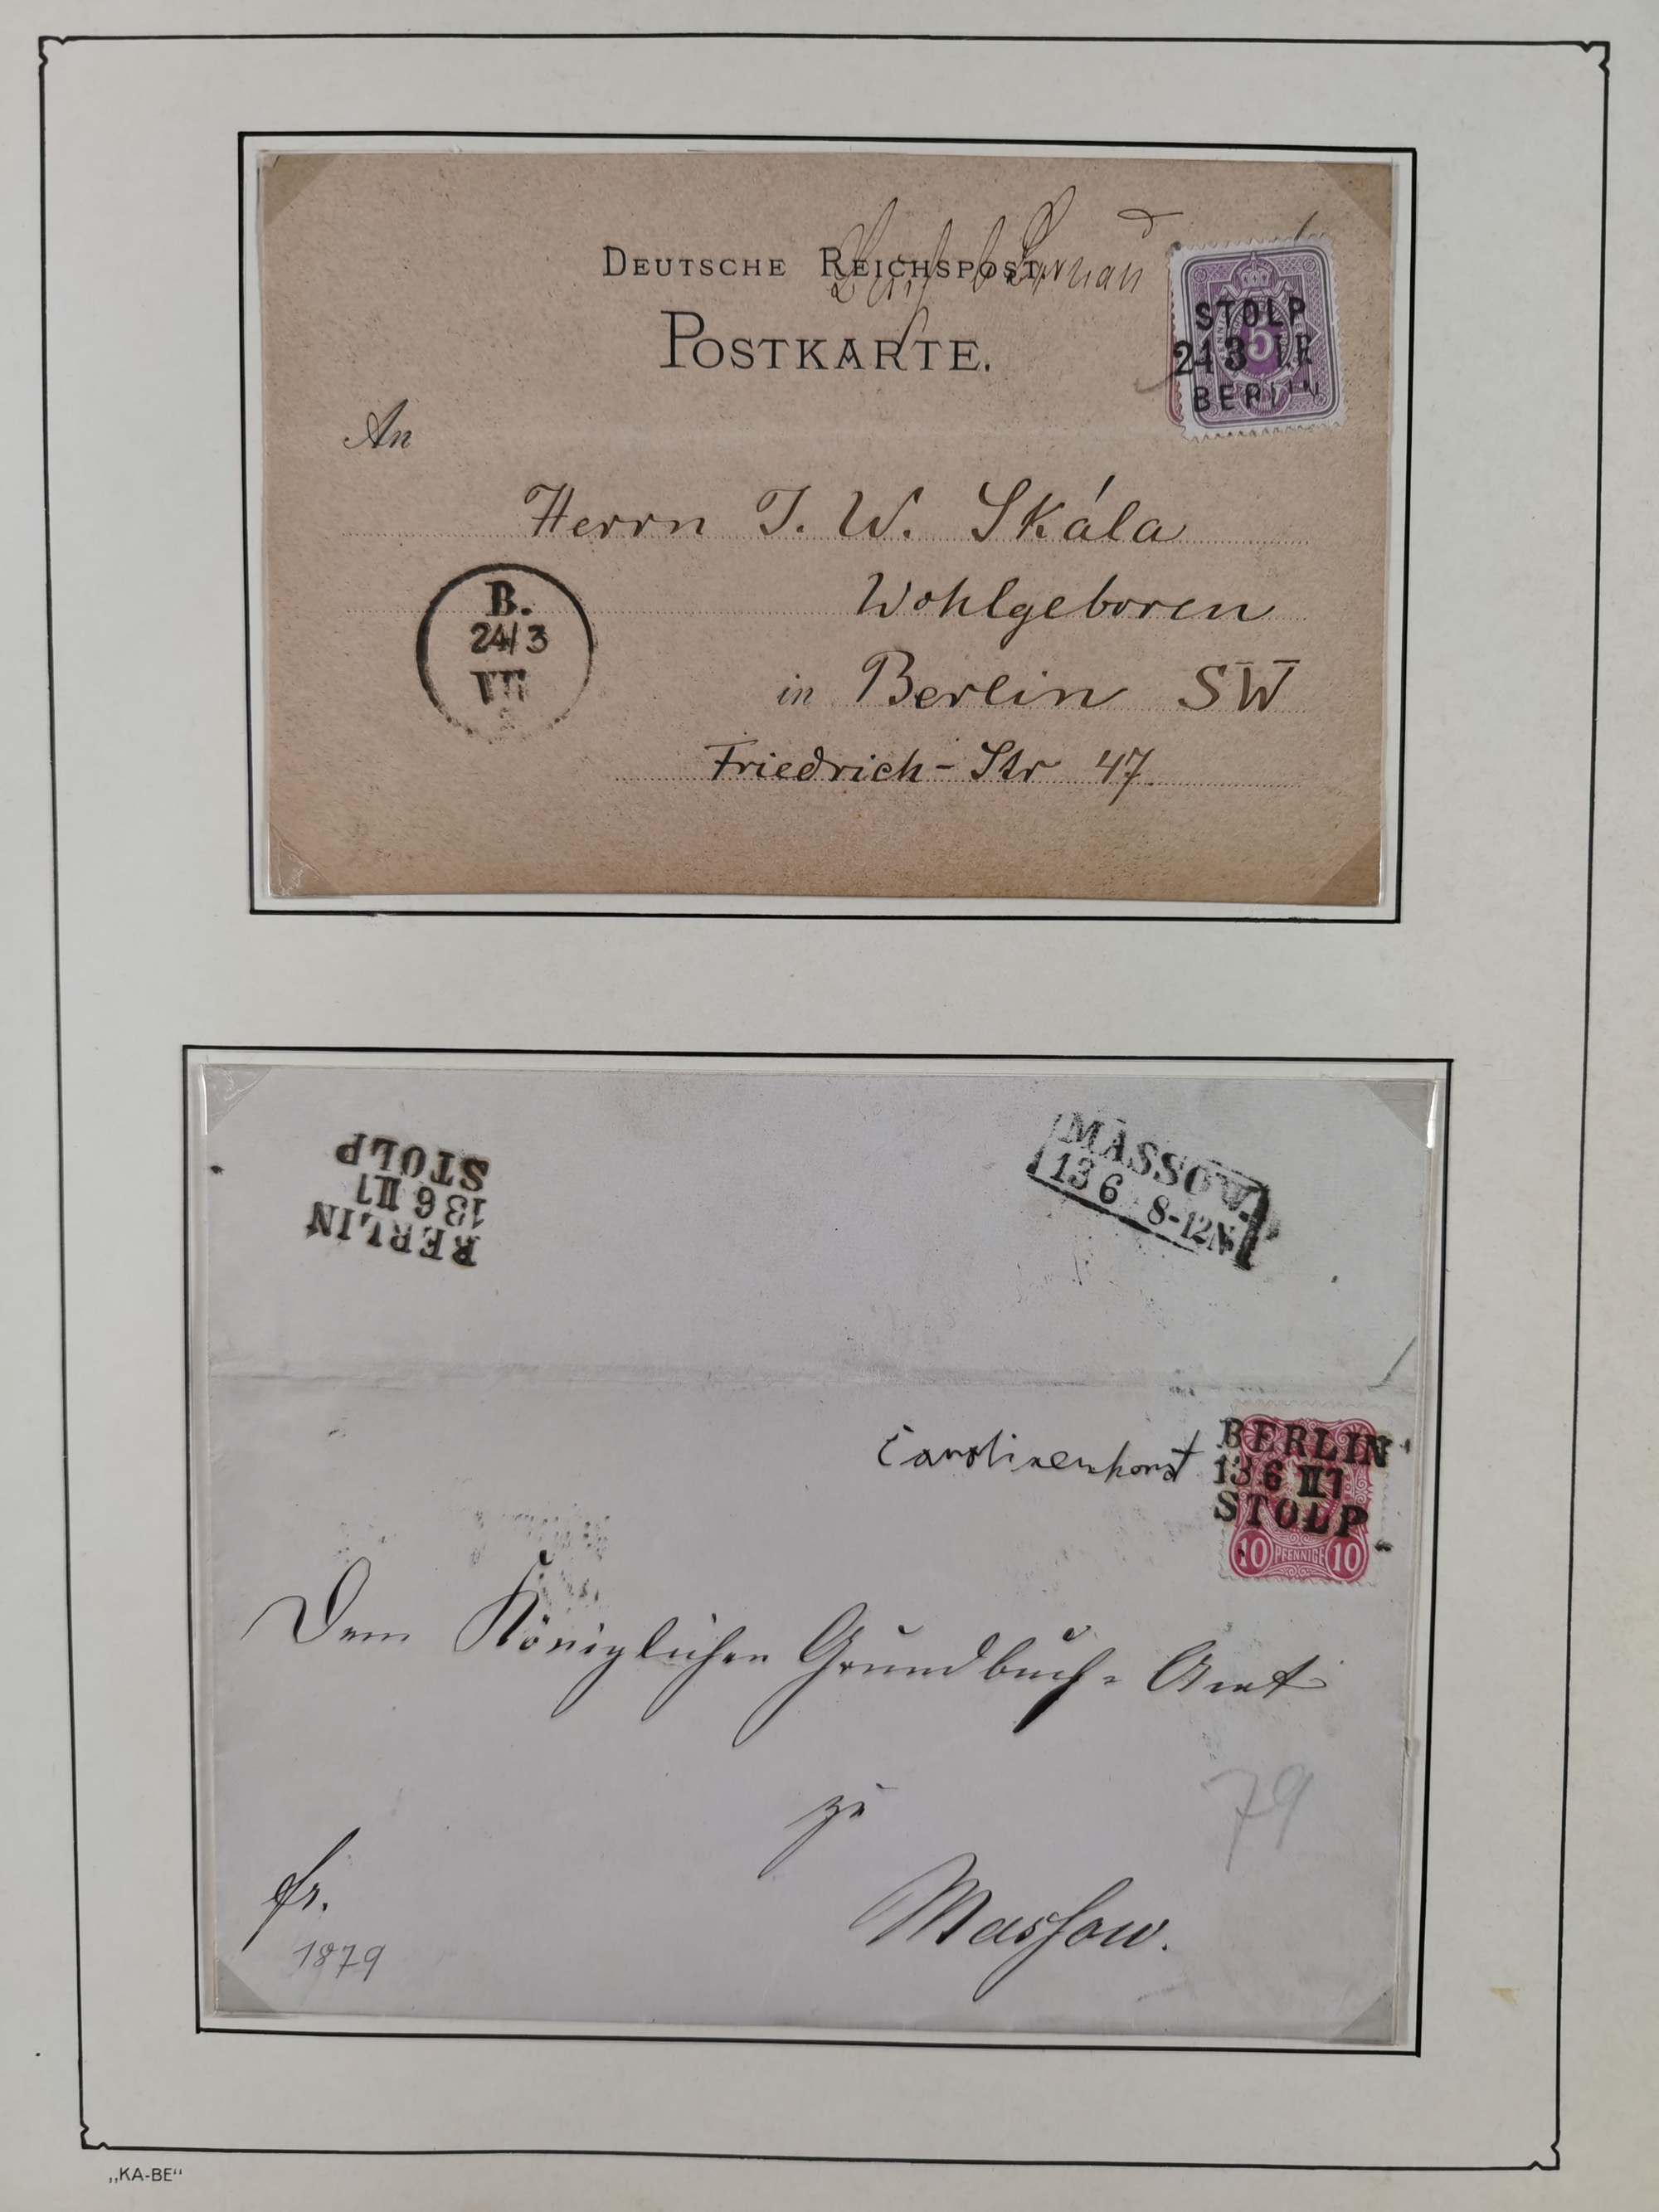 DEUTSCHE REICHSPOST
POSTKARTE.
STOLP
BERLIN
5
An
Herrn J. W. Skála
Wohlgeboren
in Berlin SW
Friedrich-Str 47
B.
24/3
VII
BERLIN
13 6 III 1
STOLP
MASSOW
13 6 8-12N
Carolinenhorst
BERLIN
13 6 III 1
STOLP
10 PFENNIGE 10
Dem Königlichen Grundbuch- Amt
zu
79
Massow.
fr.
1879
„KA-BE“